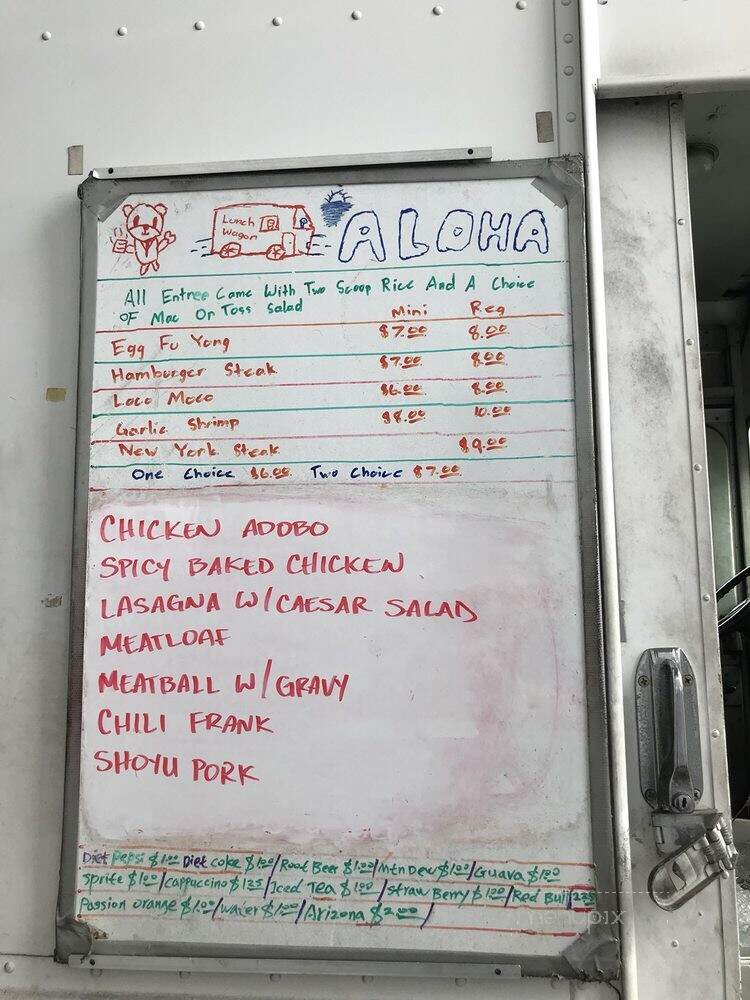 Lunch
Wagon
ALOHA
All Entree Come With Two Scoop Rice And A Choice
OF Mac Or Toss Salad
Mini Reg
Egg Fu Yong $7.00 8.00
Hamburger Steak $7.00 8.00
Loco Moco $6.00 8.00
Garlic Shrimp $8.00 10.00
New York Steak $9.00
One Choice $6.00 Two Choice $7.00
CHICKEN ADOBO
SPICY BAKED CHICKEN
LASAGNA W/CAESAR SALAD
MEATLOAF
MEATBALL W/GRAVY
CHILI FRANK
SHOYU PORK
Diet Pepsi $1.00 Diet coke $1.00/Root Beer $1.00/Mtn Dew $1.00/Guava $1.00
Sprite $1.00/Cappuccino $1.25/Iced Tea $1.00/Straw Berry $1.00/Red Bull 2.75
Passion orange $1.00/water $1.00/Arizona $2.00/